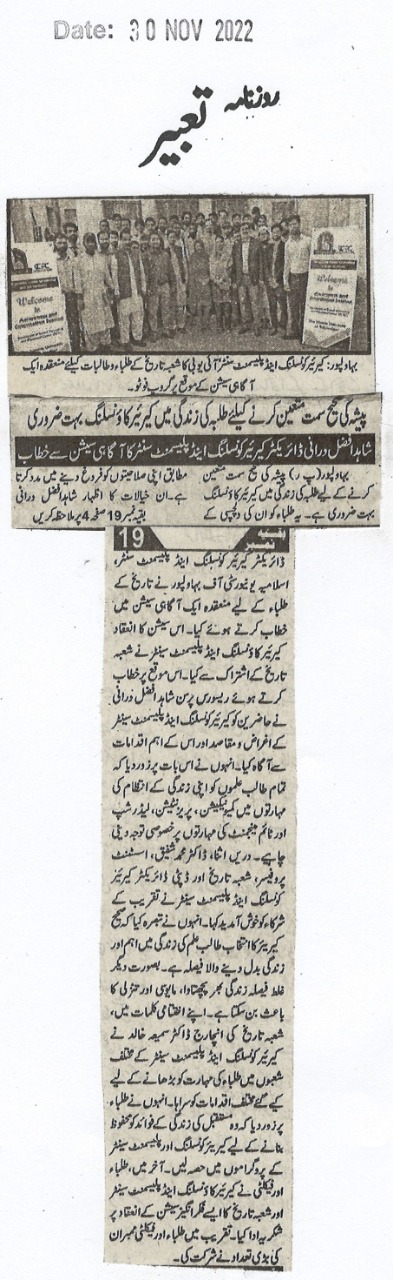 Date: 30 NOV 2022
روزنامہ تعبیر
Welcome
Awareness and
Orientation Session
Welcome
بہاولپور: کیرئیر کونسلنگ اینڈ پلیسمنٹ سنٹر آئی یو بی کا شعبہ تاریخ کے طلباء و طالبات کیلئے منعقدہ ایک
آگاہی سیشن کے موقع پر گروپ فوٹو۔
پیشہ کی صحیح سمت متعین کرنے کیلئے طلبہ کی زندگی میں کیرئیر کاؤنسلنگ بہت ضروری
شاہد افضل درانی ڈائریکٹر کیرئیر کونسلنگ اینڈ پلیسمنٹ سنٹر کا آگاہی سیشن سے خطاب
بہاولپور (پ ر) پیشہ کی صحیح سمت متعین
کرنے کے لیے طلبہ کی زندگی میں کیرئیر کاؤنسلنگ
بہت ضروری ہے۔ یہ طلباء کو ان کی دلچسپی کے
مطابق اپنی صلاحیتوں کو فروغ دینے میں مدد کرتا
ہے۔ ان خیالات کا اظہار شاہد افضل درانی
بقیہ نمبر 19 صفحہ 4 پر ملاحظہ کریں
بقیہ نمبر 19
ڈائریکٹر کیرئیر کونسلنگ اینڈ پلیسمنٹ سنٹر،
اسلامیہ یونیورسٹی آف بہاولپور نے تاریخ کے
طلباء کے لیے منعقدہ ایک آگاہی سیشن میں
خطاب کرتے ہوئے کیا۔ اس سیشن کا انعقاد
کیرئیر کاؤنسلنگ اینڈ پلیسمنٹ سینٹر نے شعبہ
تاریخ کے اشتراک سے کیا۔ اس موقع پر خطاب
کرتے ہوئے ریسورس پرسن شاہد افضل درانی
نے حاضرین کو کیرئیر کونسلنگ اینڈ پلیسمنٹ سینٹر
کے اغراض و مقاصد اور اس کے اہم اقدامات
سے آگاہ کیا۔ انہوں نے اس بات پر زور دیا کہ
تمام طالب علموں کو اپنی زندگی کے انتظام کی
مہارتوں میں کمیونیکیشن، پریزنٹیشن، لیڈرشپ
اور ٹائم مینجمنٹ کی مہارتوں پر خصوصی توجہ دینی
چاہیے۔ دریں اثنا، ڈاکٹر محمد شفیق، اسسٹنٹ
پروفیسر، شعبہ تاریخ اور ڈپٹی ڈائریکٹر کیرئیر
کونسلنگ اینڈ پلیسمنٹ سینٹر نے تقریب کے
شرکاء کو خوش آمدید کہا۔ انہوں نے تبصرہ کیا کہ صحیح
کیریئر کا انتخاب طالب علم کی زندگی میں اہم اور
زندگی بدل دینے والا فیصلہ ہے۔ بصورت دیگر
غلط فیصلہ زندگی بھر پچھتاوا، مایوسی اور تنزلی کا
باعث بن سکتا ہے۔ اپنے اختتامی کلمات میں،
شعبہ تاریخ کی انچارج ڈاکٹر سمیعہ خالد نے
کیرئیر کونسلنگ اینڈ پلیسمنٹ سینٹر کے مختلف
شعبوں میں طلباء کی مہارت کو بڑھانے کے لیے
کیے گئے مختلف اقدامات کو سراہا۔ انہوں نے طلباء
پر زور دیا کہ وہ مستقبل کی زندگی کے فوائد کو محفوظ
بنانے کے لیے کیرئیر کونسلنگ اور پلیسمنٹ سینٹر
کے پروگراموں میں حصہ لیں۔ آخر میں، طلباء
اور فیکلٹی نے کیرئیر کاؤنسلنگ اینڈ پلیسمنٹ سینٹر
اور شعبہ تاریخ کا ایسے فکر انگیز سیشن کے انعقاد پر
شکریہ ادا کیا۔ تقریب میں طلباء اور فیکلٹی ممبران
کی بڑی تعداد نے شرکت کی۔